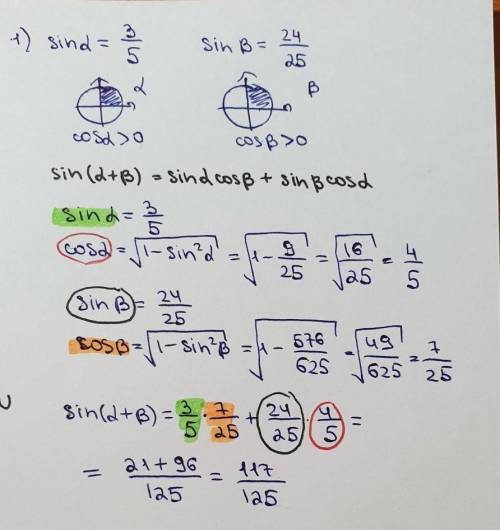 1) sinα = 3/5 sin β = 24/25
α β
cosα>0 cosβ>0
sin(α+β) = sinα cosβ + sinβ cosα
sin α = 3/5
cosα = √(1-sin²α) = √(1-9/25) = √(16/25) = 4/5
sin β = 24/25
cosβ = √(1-sin²β) = √(1-576/625) = √(49/625) = 7/25
sin(α+β) = 3/5 · 7/25 + 24/25 · 4/5 =
= (21+96)/125 = 117/125